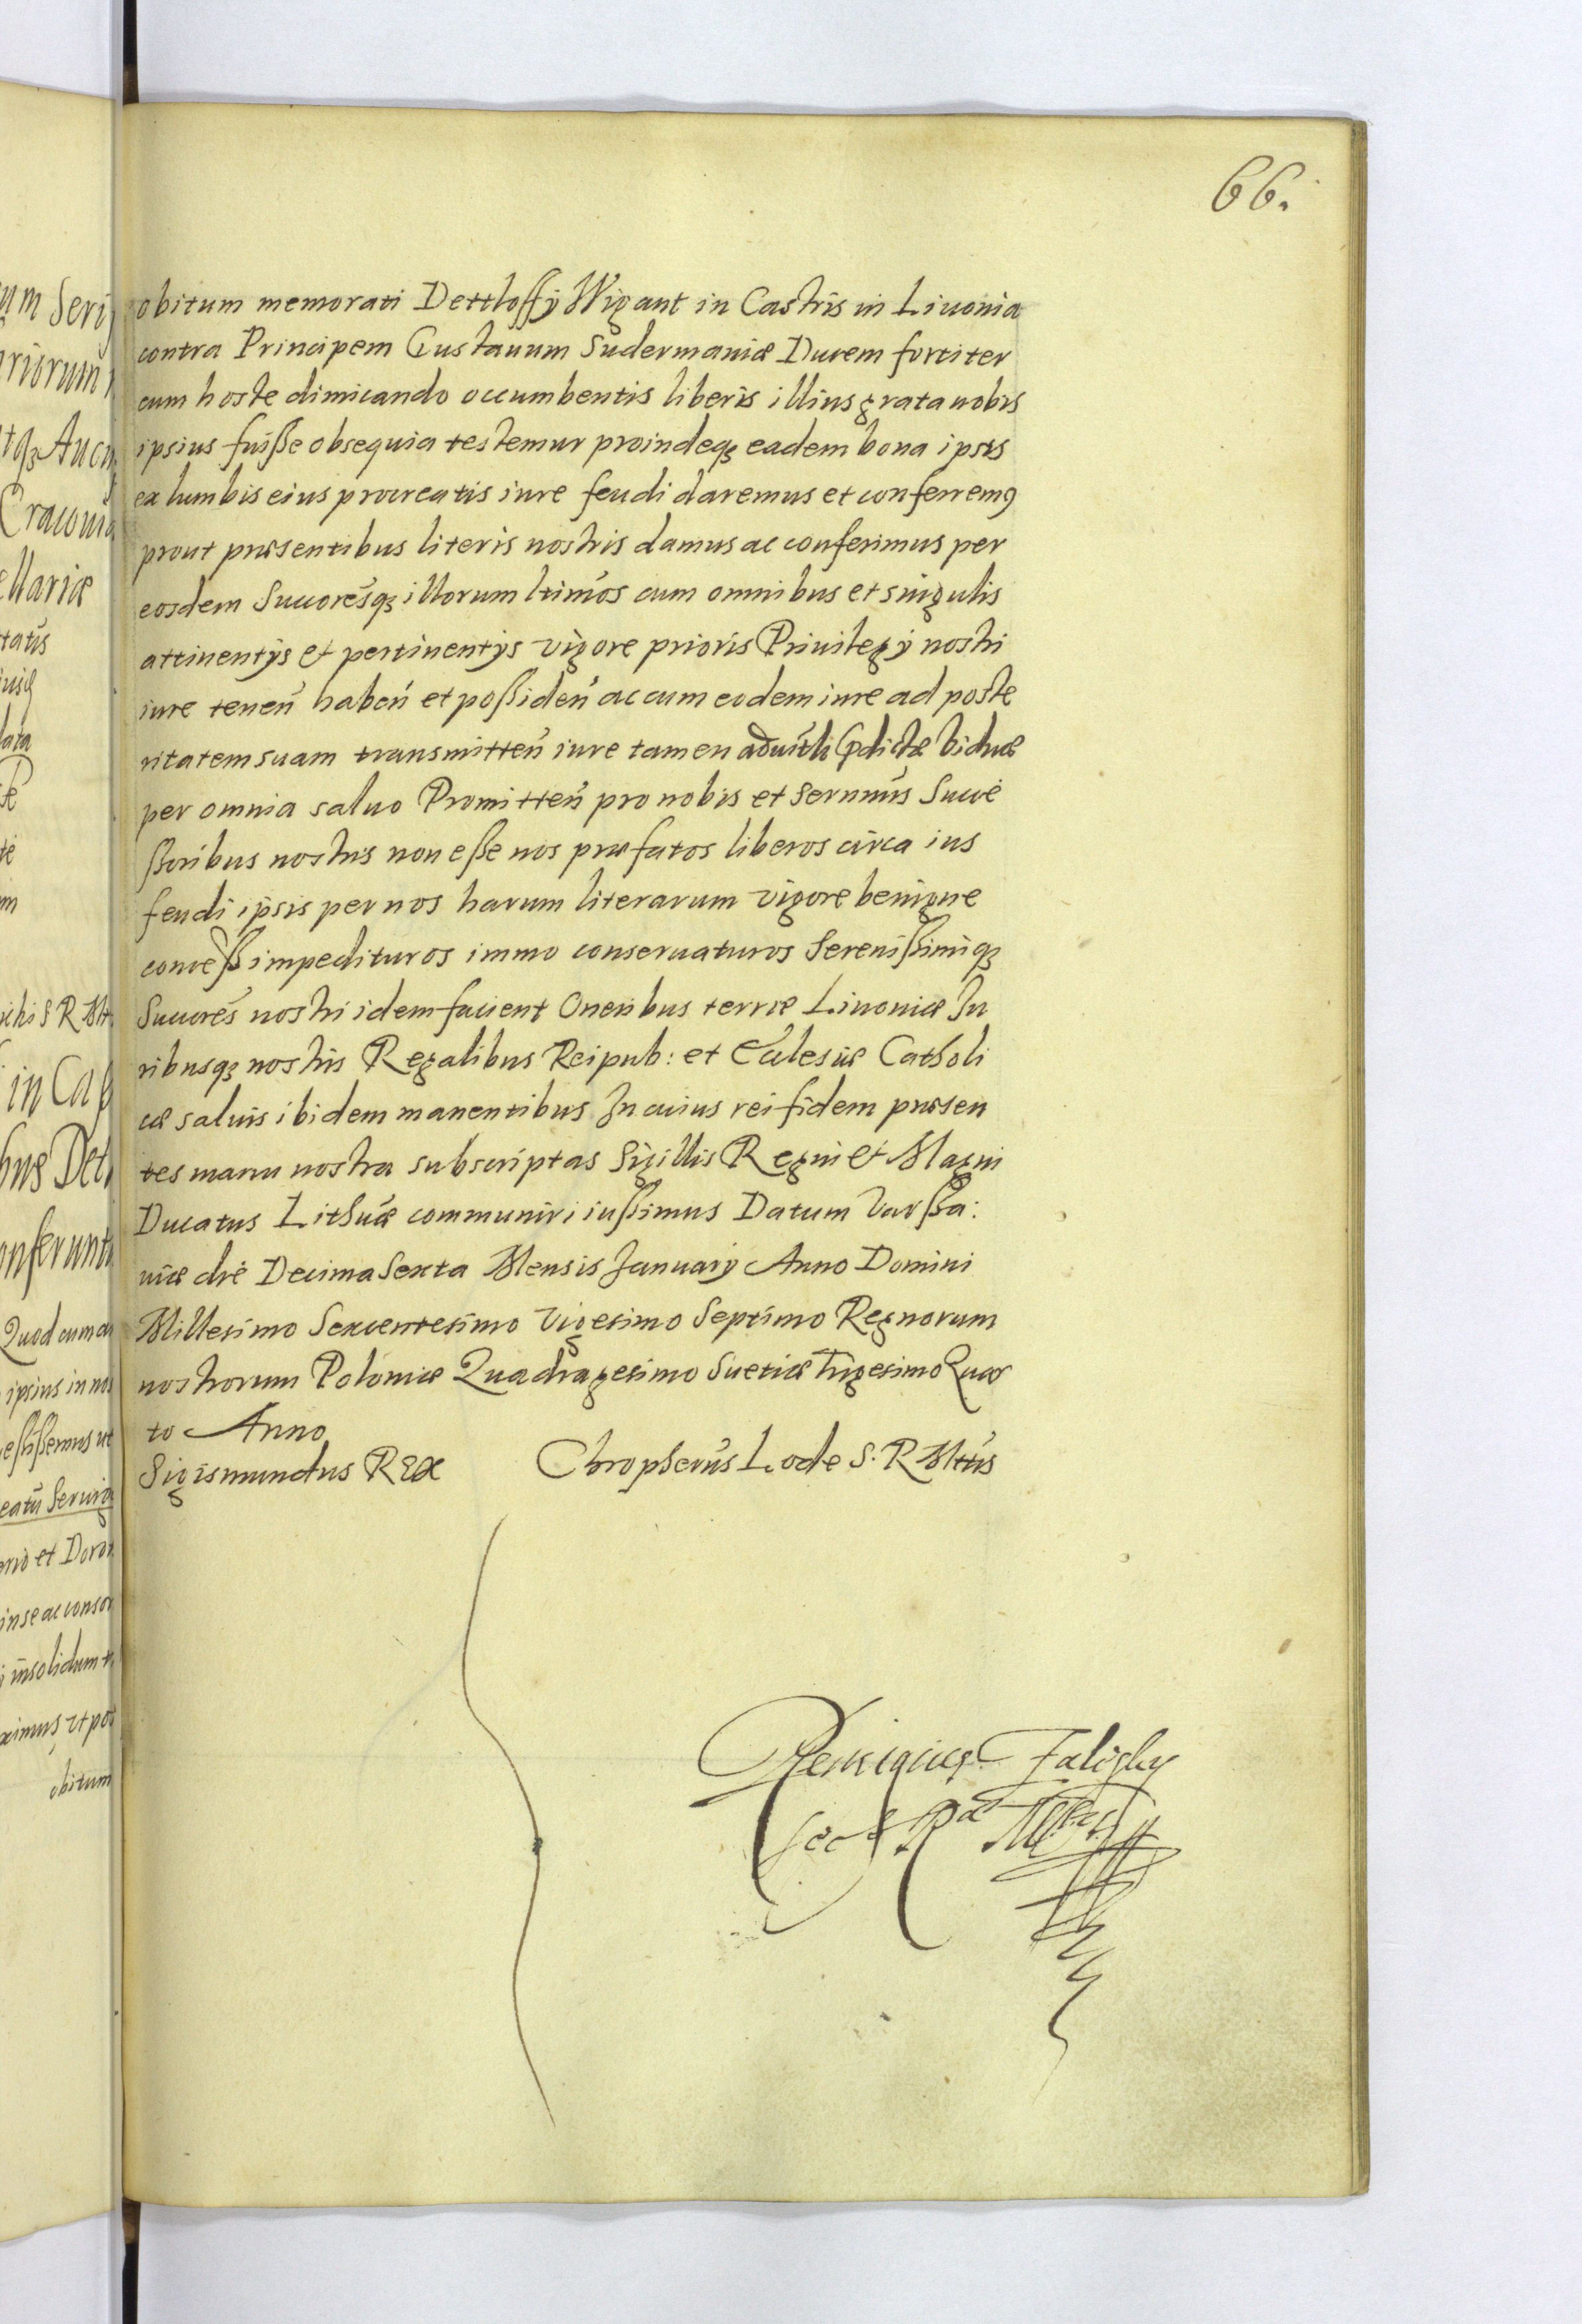 66.
obitum memorati Dettloffÿ Wigant in Castris in Liuonia
contra Principem Gustauum Sudermaniæ Ducem fortiter
cum hoste dimicando occumbentis liberis illius grata nobis
ipsius fuiße obsequia testemur proindeqꝫ eadem bona ipsis
ex lumbis eius procreatis iure feudi daremus et conferremꝰ
prout præsentibus literis nostris damus ac conferimus per
eosdem Succoresqꝫ illorum ltimos cum omnibus et singulis
attinentÿs et pertinentÿs vigore prioris Priuilegÿ nostri
iure teneñ habeñ et poßideñ ac cum eodem iure ad poste
ritatem suam transmitteñ iure tamen aduitli pdictæ viduæ
per omnia saluo Promitteñ pro nobis et Sernmis Succe
ßoribus nostris non eße nos præfatos liberos circa ius
feudi ipsis per nos harum literarum vigore benigne
conceß impedituros immo conseruaturos Serenißimiqꝫ
Succores nostri idem facient Oneribus terræ Liuoniæ Iu
ribusqꝫ nostris Regalibus Reipub: et Ecclesiæ Catholi
cæ saluis ibidem manentibus In cuius rei fidem præsen
tes manu nostra subscriptas Sigillis Regni et Magni
Ducatus Lithuæ communiri iußimus Datum Varßa:
uiæ die Decima Sexta Mensis Januarÿ Anno Domini
Millesimo Sexcentesimo Vigesimo Septimo Regnorum
nostrorum Poloniæ Quadragesimo Suetiæ Trigesimo Quar
to Anno
Sigismundus REX Chropherus Lode S. R Mtis
Remigius Zalisky
Sec R Mtis